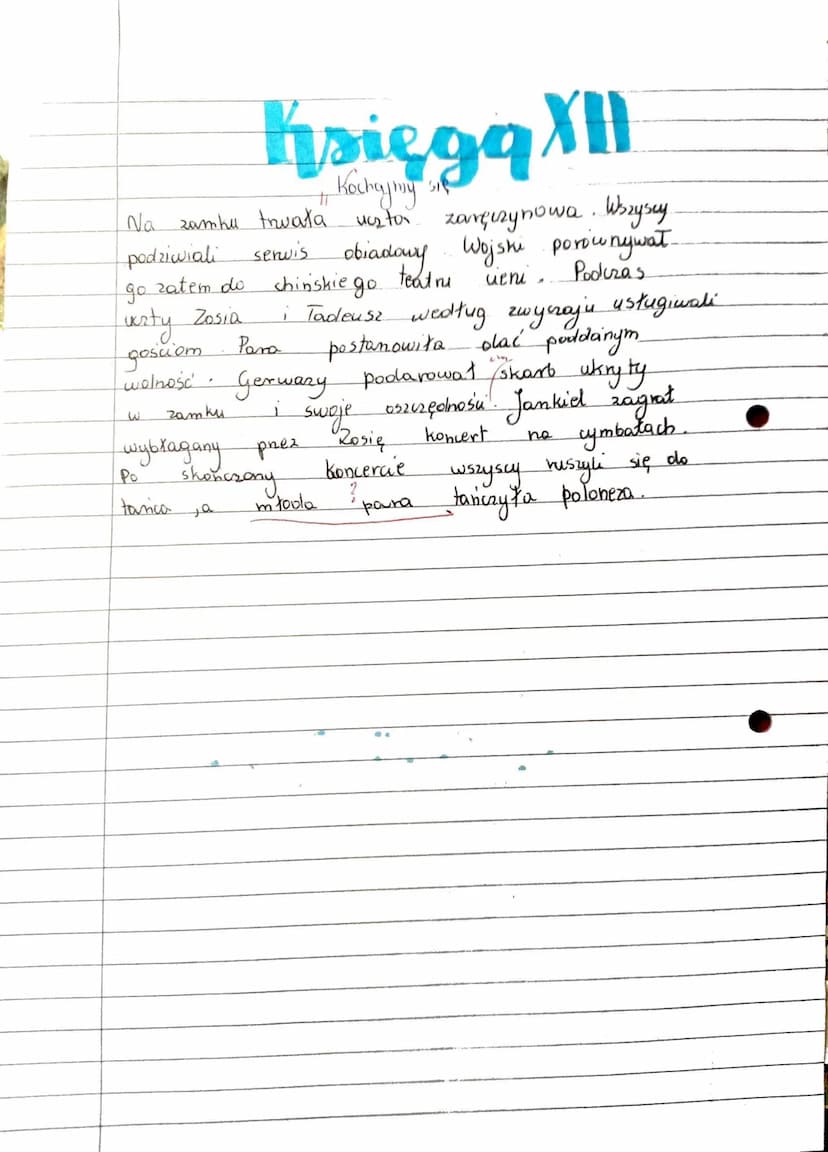 Księga XII
"Kochajmy się
Na zamku trwała uczta zaręczynowa. Wszyscy
podziwiali serwis obiadowy Wojski porównywał
go zatem do chińskiego teatru cieni. Podczas
uczty Zosia i Tadeusz według zwyczaju usługiwali
gościom. Para postanowiła dać poddanym
wolność. Gerwazy podarował skarb ukryty
w zamku i swoje oszczędności. Jankiel zagrał
wybłagany przez Zosię koncert na cymbałach.
Po skończony koncercie wszyscy ruszyli się do
tańca, a młoda ? para tańczyła poloneza.